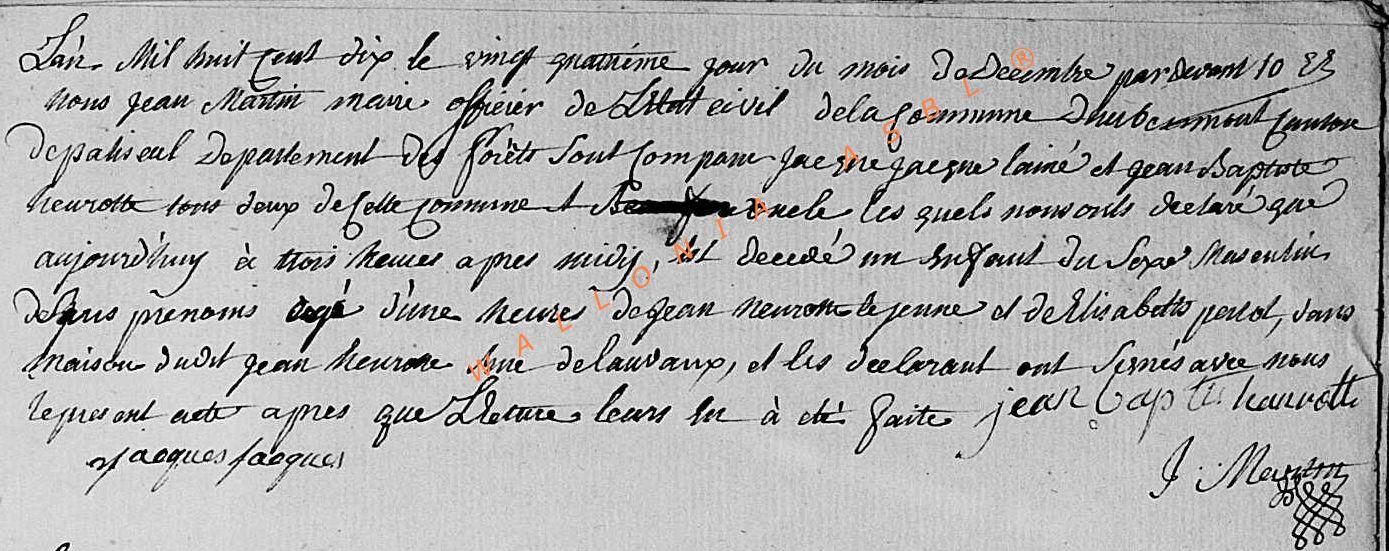 L'an Mil huit Cent dix le vingt quatriéme jour du mois de Decembre par devant
nous jean Martin maire officier de L'Etat civil de la Commune d'auby Canton
de paliseul departement des forêts Sont Comparu jacque jacque lainé et jean Baptiste
heurotte tous deux de Cette Commune et oncle les quels nous onts declaré que
aujourd'huy à trois heures apres midy, est decedé un Enfant du Sexe Masculin
de Sans prenoms agé d'une heures de jean heurotte le jeune et de Elisabeth perlot, dans
maison dudit jean heurotte de lauvaux, et les declarant ont Signés avec nous
le present acte apres que Lecture leurs En à eté faite jean baptis heurotte
jacques jacques
J. Martin
WALLONIA ASBL ®